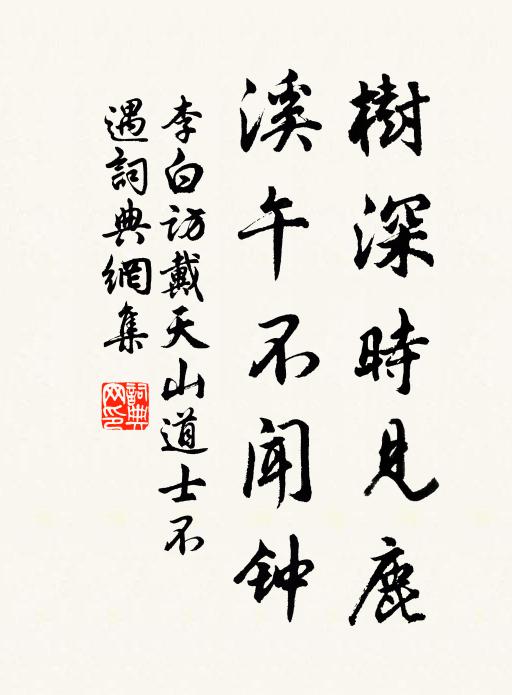 樹深時見鹿
溪午不闻钟
李白訪戴天山道士不
遇詞典網集
詞典
网印